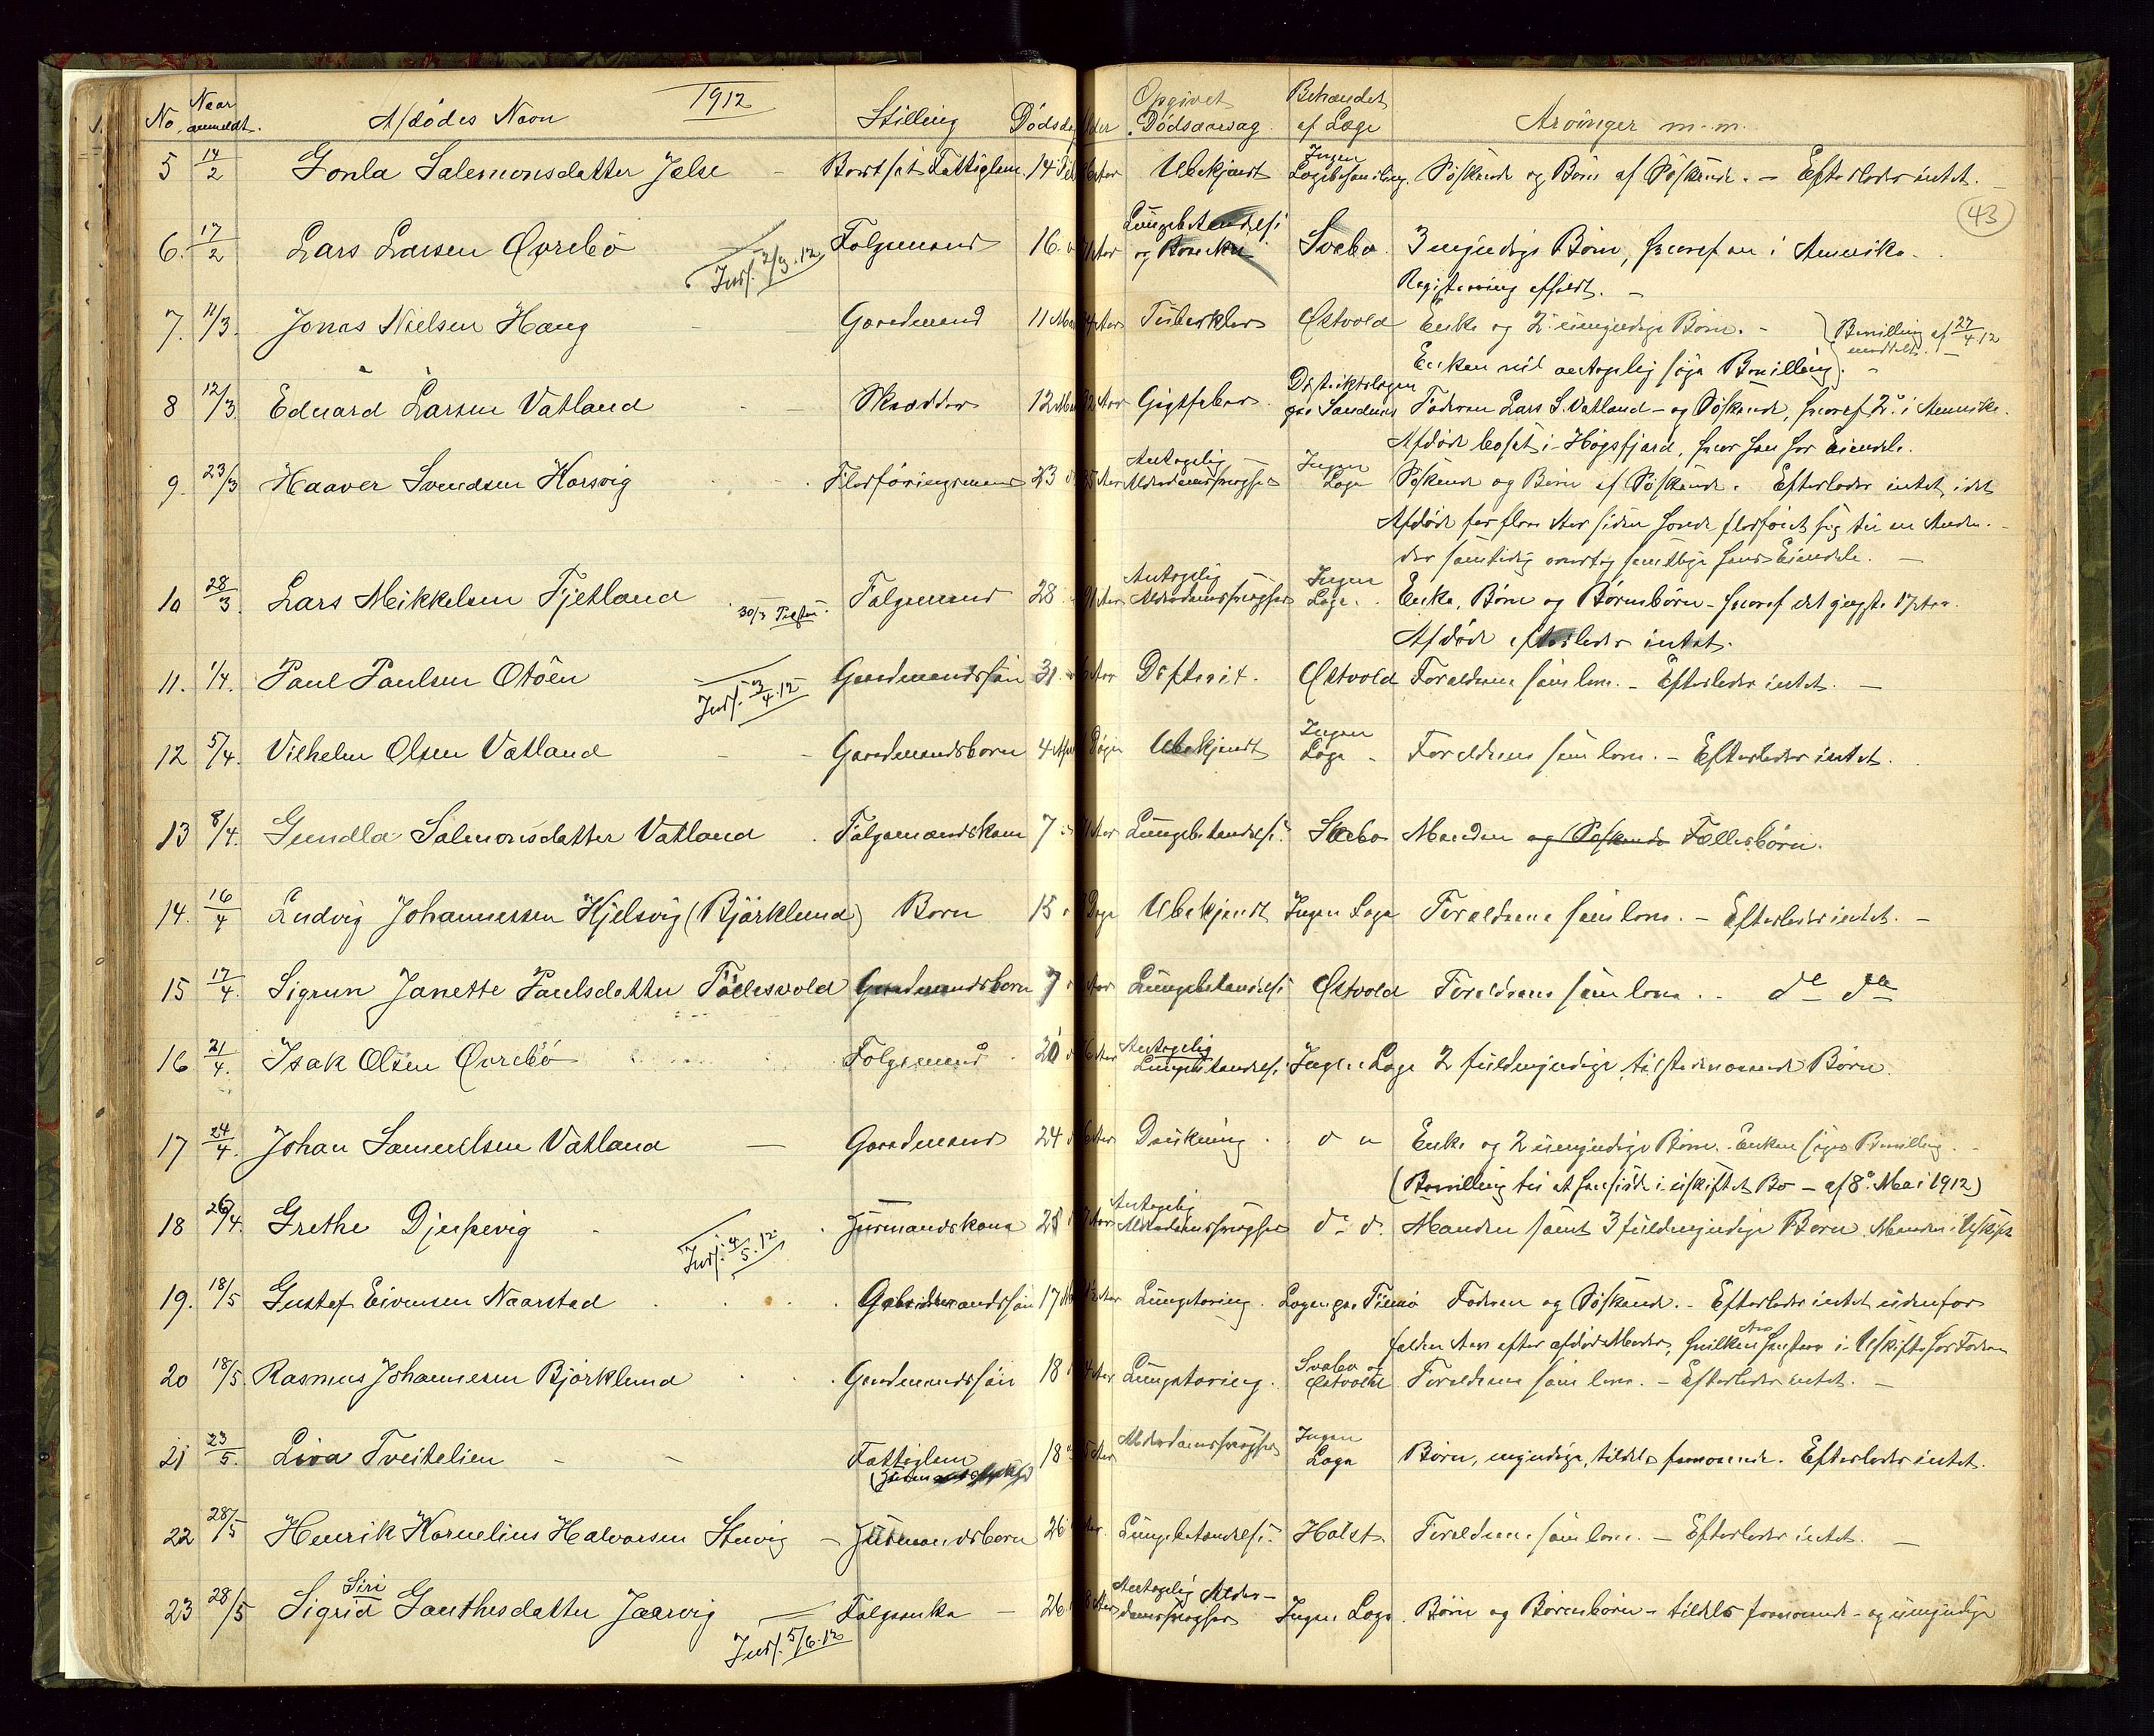 1912
No. Naar anmeldt. Afdødes Navn Stilling Dödsdag Opgivet Dödsaarsag Behandlet af Læge Arvinger m.m.
43
5 14/2 Gonla Salemonsdatter Jelse - Bortsat Fattiglem 14 Feb Aar Ubekjendt Ingen Lægebehandling. Søskende og Børn af Søskende. - Efterlader intet.
6. 17/2 Lars Larsen Qvrebö Folgemand 16. Aar Lungebetændelse Svebo 3 myndige Børn, hvoraf en i Amerika.
Indf. 2/3.12 og Bronkit Registrering afholdt. -
7. 11/3. Jonas Nielsen Haug - - Gaardmand 11 Mar Aar Tuberkler Østvold Enke og 2 umyndige Børn. - Bevilling af 27/4.12 meddelt. -
Enken vil antagelig søge Bevilling. -
8 12/3 Edvard Larsen Vatland - - Skrædder 12 Mar Aar Gigtfeber Distriktslægen paa Sandnes Faderen Lars S. Vatland - og Søskende, hvoraf 2 i Amerika.
Afdøde bosat i Høgsfjord, hvor han har Eiendele.
9. 23/3 Haaver Svendsen Horsvig Flodføringsmand 23 Aar Antagelig Alderdomssvaghed Ingen Læge Søskende og Børn af Søskende. Efterlader intet, idet
Afdøde for flere Aar siden havde flodføret sig til en Anden.
der samtidig overtog samtlige hans Eiendele. -
10 28/3 Lars Mikkelsen Tjetland 30/3 Folgemand 28 91 Aar Antagelig Alderdomssvaghed Ingen Læge. Enke, Børn og Børnebørn - hvoraf det yngste 17 Aar.
Afdøde efterlader intet.
11. 1/4. Paul Paulsen Otöen Indf. 3/4.12 Gaardmandssön 31 Aar Difterit. Østvold Forældrene som leve. - Efterlader intet. -
12 5/4. Vilhelm Olsen Vatland - - Gaardmandsbarn 4 Apr Døgn Ubekjendt Ingen Læge - Forældrene som leve. - Efterlader intet.
13 8/4. Gundla Salmonsdatter Vatland . Folgemandskone 7 Aar Lungebetændelse. Svebo Manden og Søskende Fællesbørn.
14. 16/4 Ludvig Johannessen Hjelsvig (Björklund) Barn 15 Dage Ubekjendt Ingen Læge Forældrene som leve. - Efterlader intet. -
15 17/4. Sigrun Janette Paulsdatter Tödesvold Gaardmandsbarn 7 Aar Lungebetændelse Østvold Forældrene som leve. - do do
16 21/4. Isak Olsen Qvrebö Folgemand 20 Aar Antagelig Lungebetændelse Ingen Læge 2 fuldmyndige, tilstedeværende Børn.
17 24/4. Johan Samuelsen Vatland - Gaardmand 24 Aar Drukning. d o Enke og 2 umyndige Børn. Enken søger Bevilling. -
(Bevilling til at hensidde i uskiftet Bo - af 8. Mai 1912)
18 26/4. Grethe Djupevig - Indf. 4/5.12 Husmandskone 25 Aar Antagelig Alderdomssvaghed do. d. Manden samt 3 fuldmyndige Børn. Manden i Uskifte
19. 18/5 Gustaf Eivensen Naarstad . . . 17 Mai Aar Lungetæring. Lægen paa Faderen og Søskende. - Efterlader intet udenfor
falden Arv efter afdøde Moder, hvilken Arv henstaar i Uskifte hos Faderen
20 18/5. Rasmus Johannesen Björklund . . . Gaardmandssön 18 Aar Lungetæring. Svebo og Østvold Forældrene som leve. - Efterlader intet. -
21 23/5. Liva Tveitelien - - Fattiglem 18 Aar Alderdomssvaghed Ingen Læge Børn, myndige, tildels fraværende. Efterlader intet.
22 28/5 Henrik Kornelius Halvorsen - Husmandsbarn 26 Aar. Lungebetændelse. Holst Forældrene som leve. - Efterlader intet. -
Siri
23 28/5 Sigrid Gauthesdatter Jaarvig Folgeenke - 26. Aar Antagelig Alder-
domssvaghed Ingen Læge. Børn og Børnebørn - tildels fraværende - og umyndige
Indf. 5/6.12